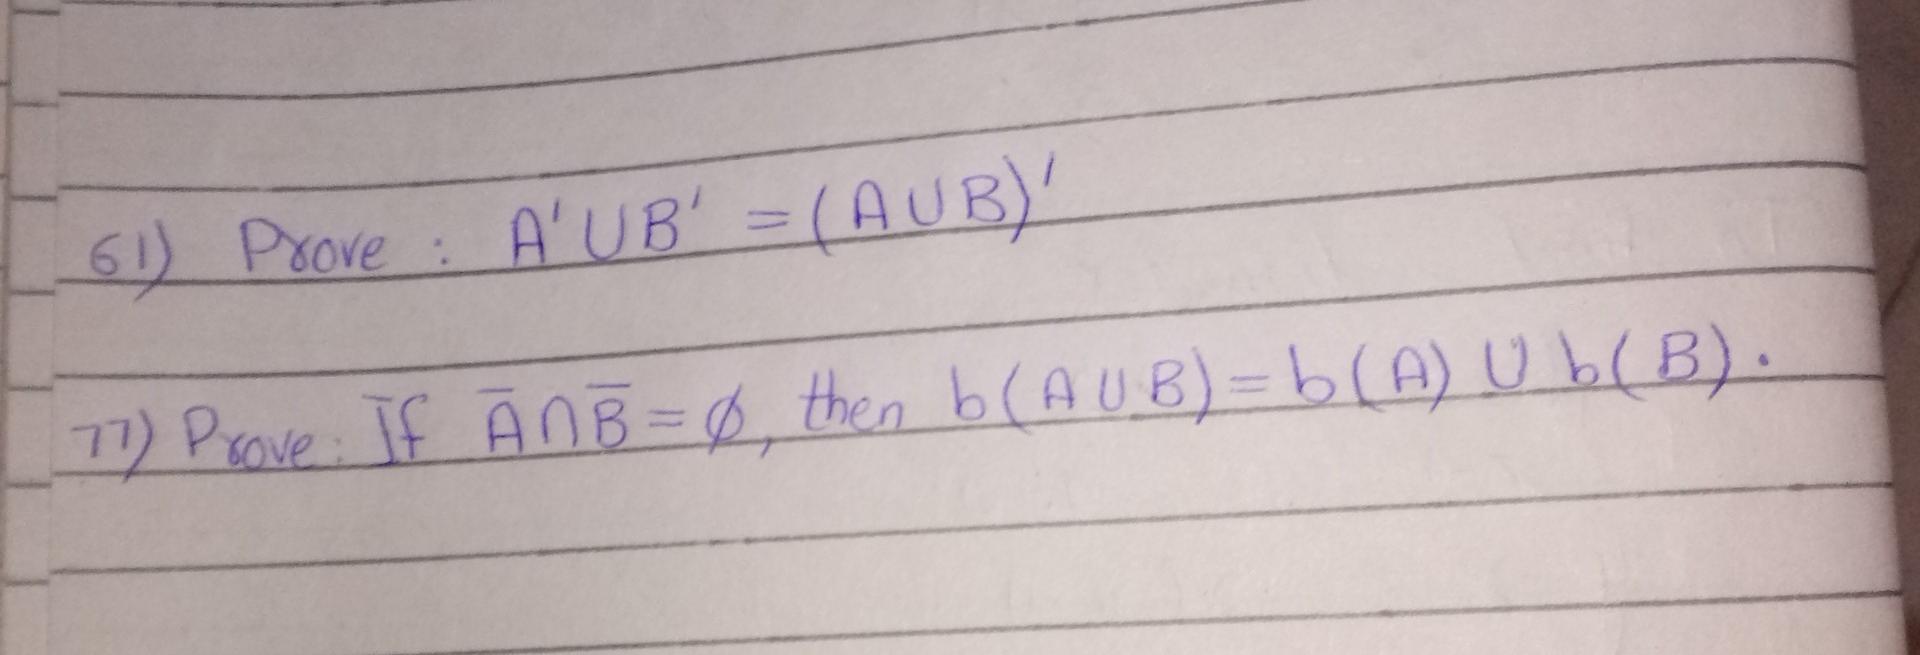 61) Prove : A'UB' = (AUB)'
77) Prove: If A̅∩B̅=ϕ, then b(AUB)=b(A) U b(B).